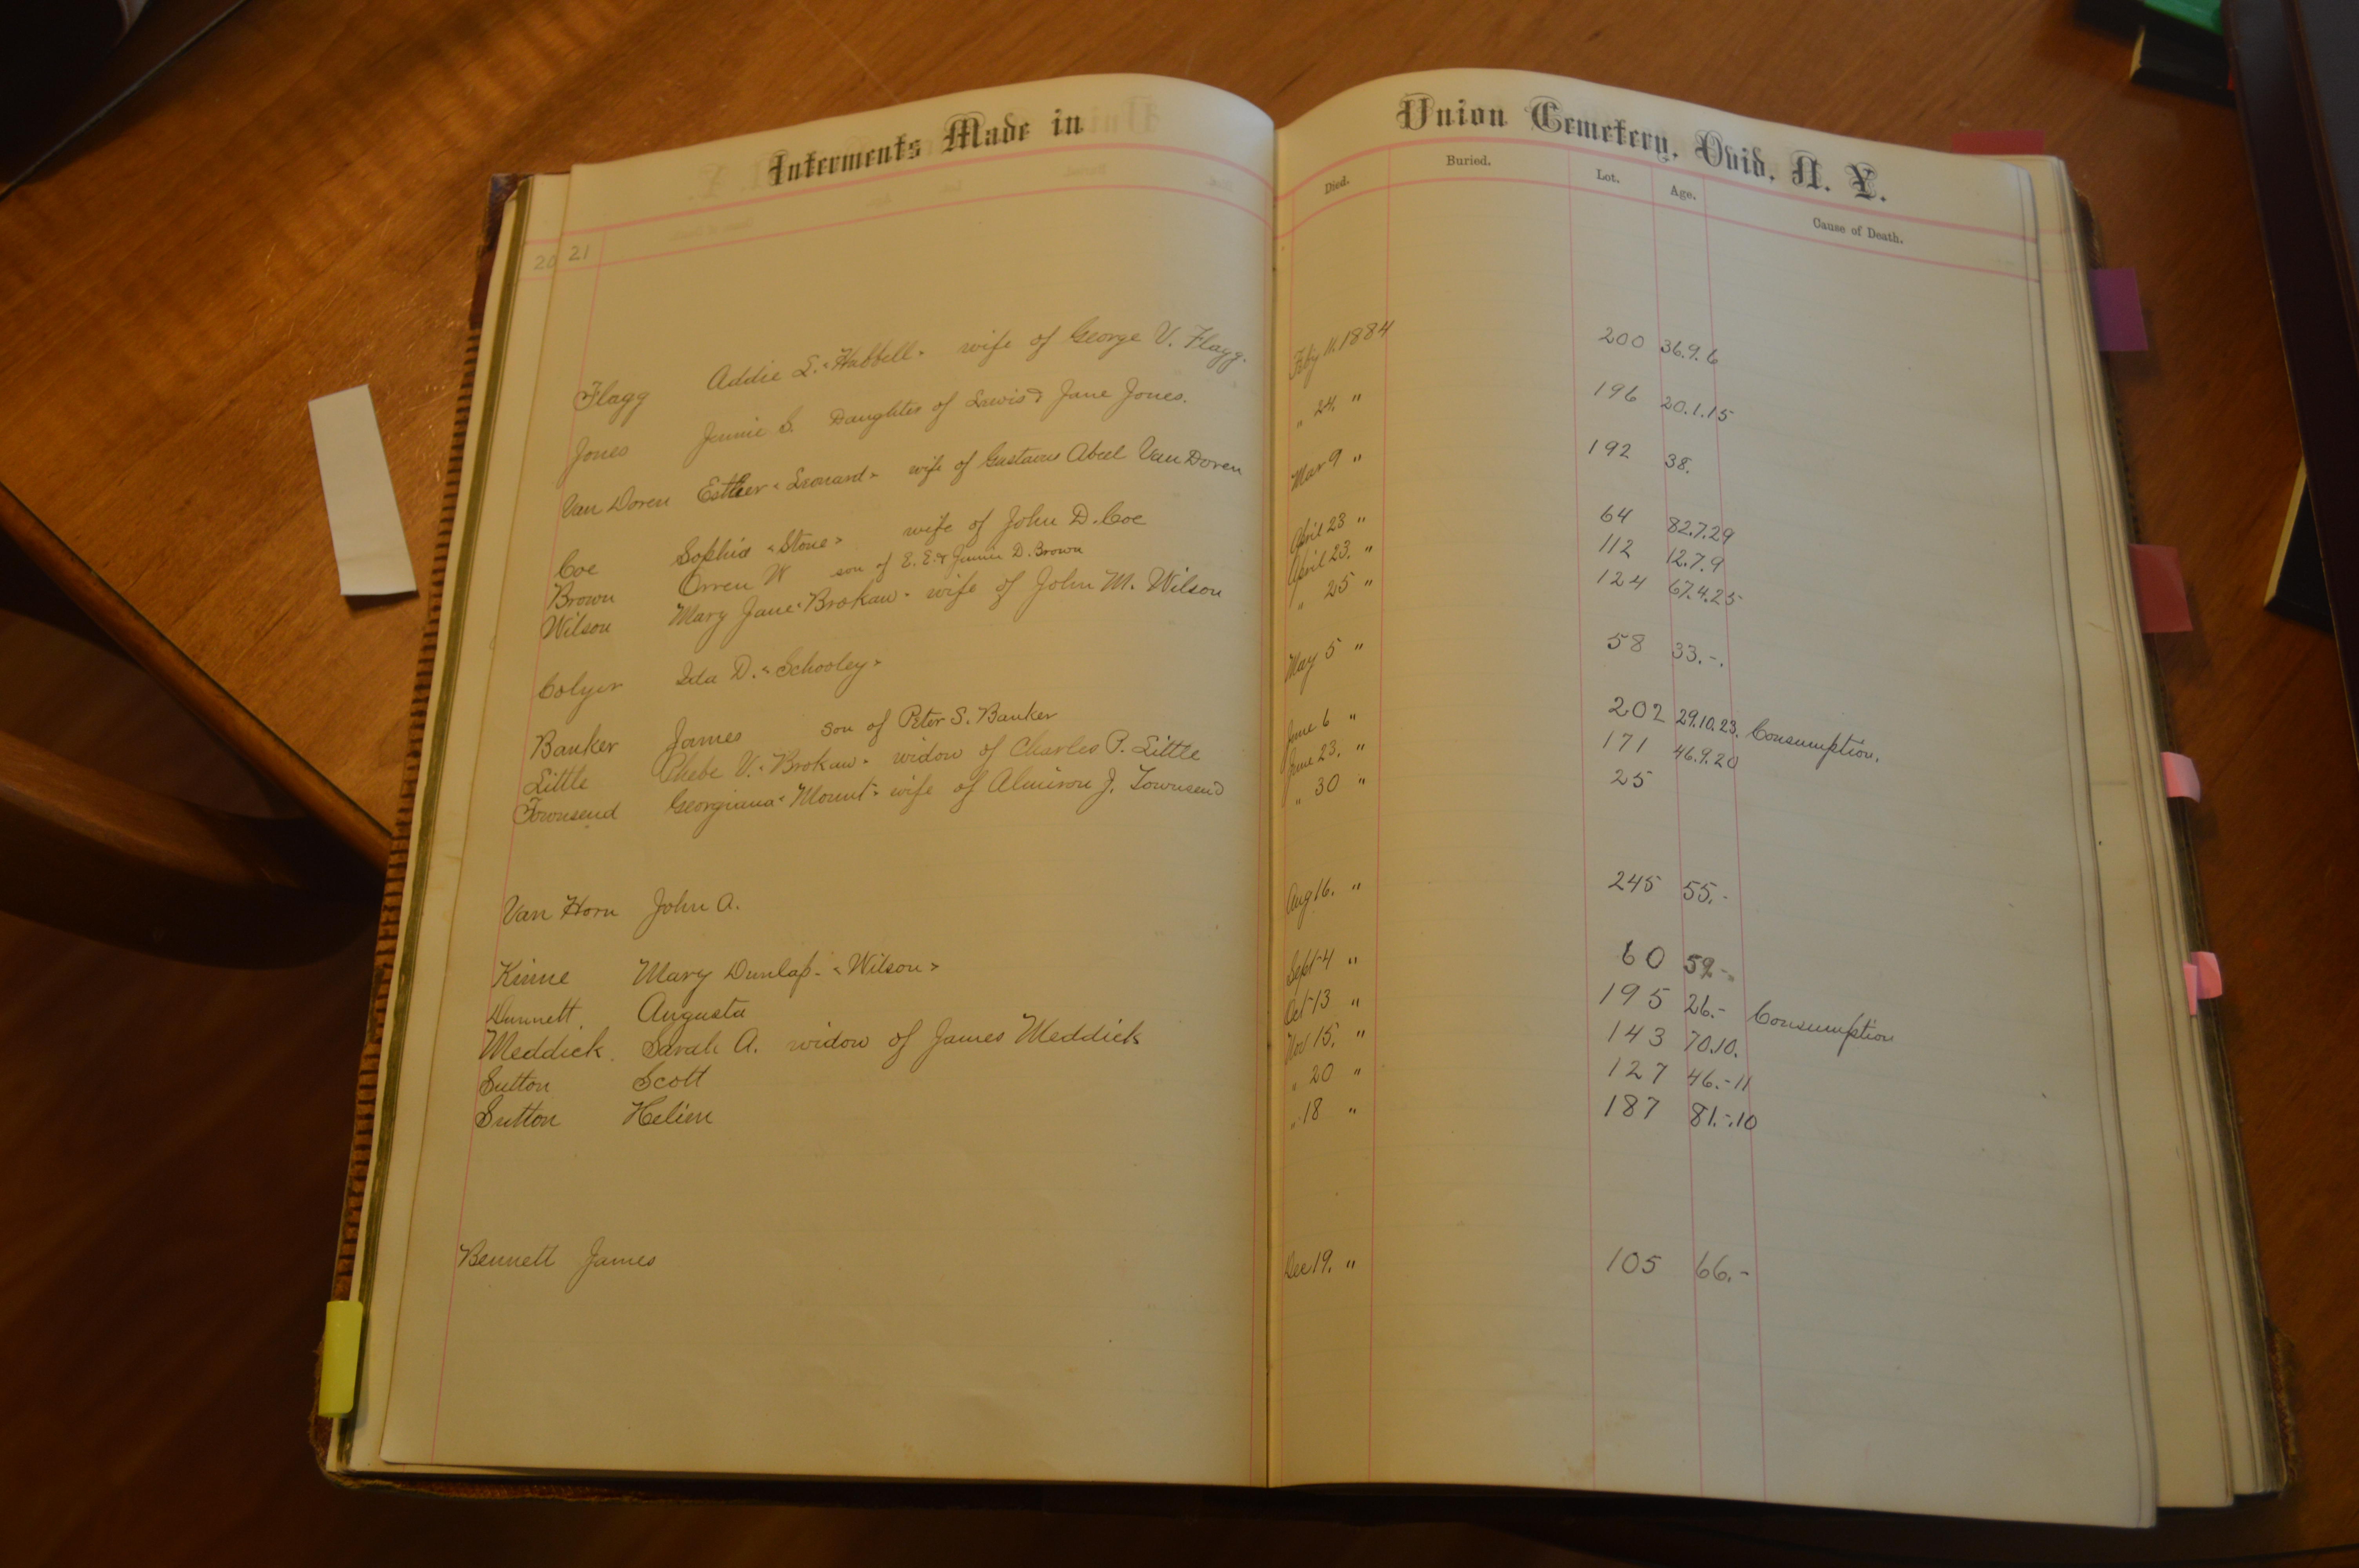 Interments Made in Union Cemetery, Ovid, N. Y.
Died. Buried. Lot. Age. Cause of Death.
20 21
Flagg Addie L. "Habbell" wife of George V. Flagg. Feb'y 11. 1884 200 36.9.6
Jones Jennie S. Daughter of Lewis & Jane Jones. " 24. " 196 20.1.15
Van Doren Esther "Leonard" wife of Gustavus Abeel Van Doren Mar 9 " 192 38.
Coe Sophia "Stone" wife of John D. Coe April 23 " 64 82.7.29
Brown Orren W son of E. E. & Jennie D. Brown April 23. " 112 12.7.9
Wilson Mary Jane "Brokaw" wife of John M. Wilson " 25 " 124 67.4.25
Colyer Ida D. "Schooley" May 5 " 58 33.-.
Banker James son of Peter S. Banker June 6 " 202 29.10.23. Consumption.
Little Phebe V. "Brokaw" widow of Charles P. Little June 23. " 171 46.9.20
Townsend Georgiana "Mount" wife of Almiron J. Townsend " 30 " 25
Van Horn John A. Aug 16. " 245 55.-
Kinne Mary Dunlap- "Wilson" Sept 4 " 60 59-.
Dunnett. Augusta Oct 13 " 195 26.- Consumption
Meddick. Sarah A. widow of James Meddick Nov 15. " 143 70.10.
Sutton Scott " 20 " 127 46.-11
Sutton Helien " 18 " 187 81.-.10
Bennett James Dec 19. " 105 66.-